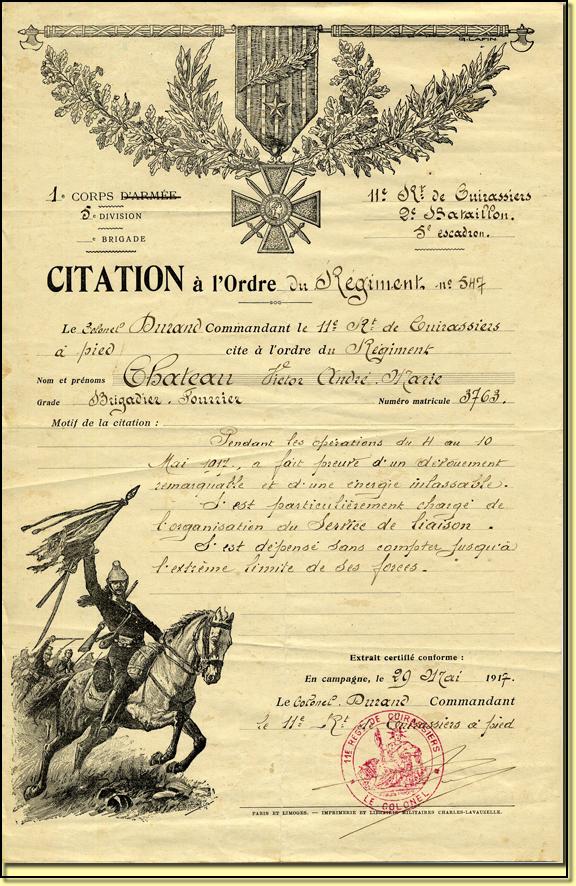 G. LAFIN
1e CORPS D'ARMÉE
5e DIVISION
e BRIGADE
11e Rt de Cuirassiers
2e Bataillon.
5e escadron.
CITATION à l'Ordre du Régiment n° 547
Le Colonel Durand Commandant le 11e Rt de Cuirassiers
à pied cite à l'ordre du Régiment
Nom et prénoms Chateau Victor André Marie
Grade Brigadier-Fourrier Numéro matricule 3763.
Motif de la citation :
Pendant les opérations du 4 au 10
Mai 1917, a fait preuve d'un dévouement
remarquable et d'une énergie inlassable.
S'est particulièrement chargé de
l'organisation du Service de liaison.
S'est dépensé sans compter jusqu'à
l'extrème limite de ses forces.
Extrait certifié conforme :
En campagne, le 29 Mai 1917.
Le Colonel Durand Commandant
le 11e Rt de Cuirassiers à pied
11E RÉGT DE CUIRASSIERS
LE COLONEL
PARIS ET LIMOGES. — IMPRIMERIE ET LIBRAIRIE MILITAIRES CHARLES-LAVAUZELLE.